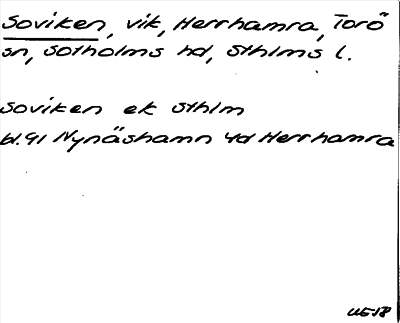 Soviken, vik, Herrhamra, Torö
sn, Sotholms hd, Sthlms l.
Soviken ek Sthlm
bl.91 Nynäshamn 4d Herrhamra
UE-18